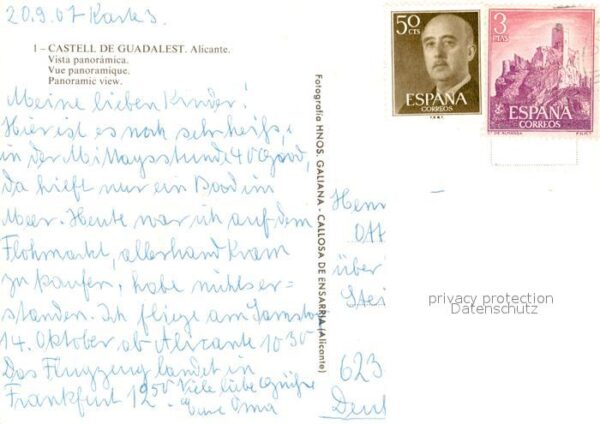 20.9.67 Karte 3
1 – CASTELL DE GUADALEST. Alicante.
Vista panorámica.
Vue panoramique.
Panoramic view.
Meine lieben Kinder!
Hier ist es noch sehr heiß,
in der Mittagsstunde 40 Grad,
da hilft nur ein Bad im
Meer. Heute war ich auf dem
Flohmarkt, allerhand Kram
zu kaufen, habe nichts er-
standen. Ich fliege am Samstag
14. Oktober ab Alicante 10 30
Das Flugzeug landet in
Frankfurt 12 50 Viele liebe Grüße
Eure Oma
Fotografía HNOS. GALIANA - CALLOSA DE ENSARRIA (Alicante)
50 CTS
ESPAÑA
CORREOS
F.N.M.T.
3 PTAS
ESPAÑA
CORREOS
DE ALMANSA
F.N.M.T.
Herr
Ott
über
Stei
623
Deut
privacy protection
Datenschutz